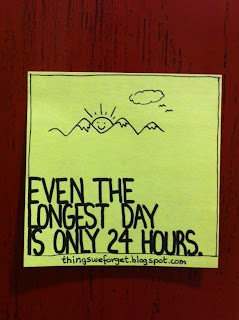 EVEN THE
LONGEST DAY
IS ONLY 24 HOURS.
thingsweforget.blogspot.com